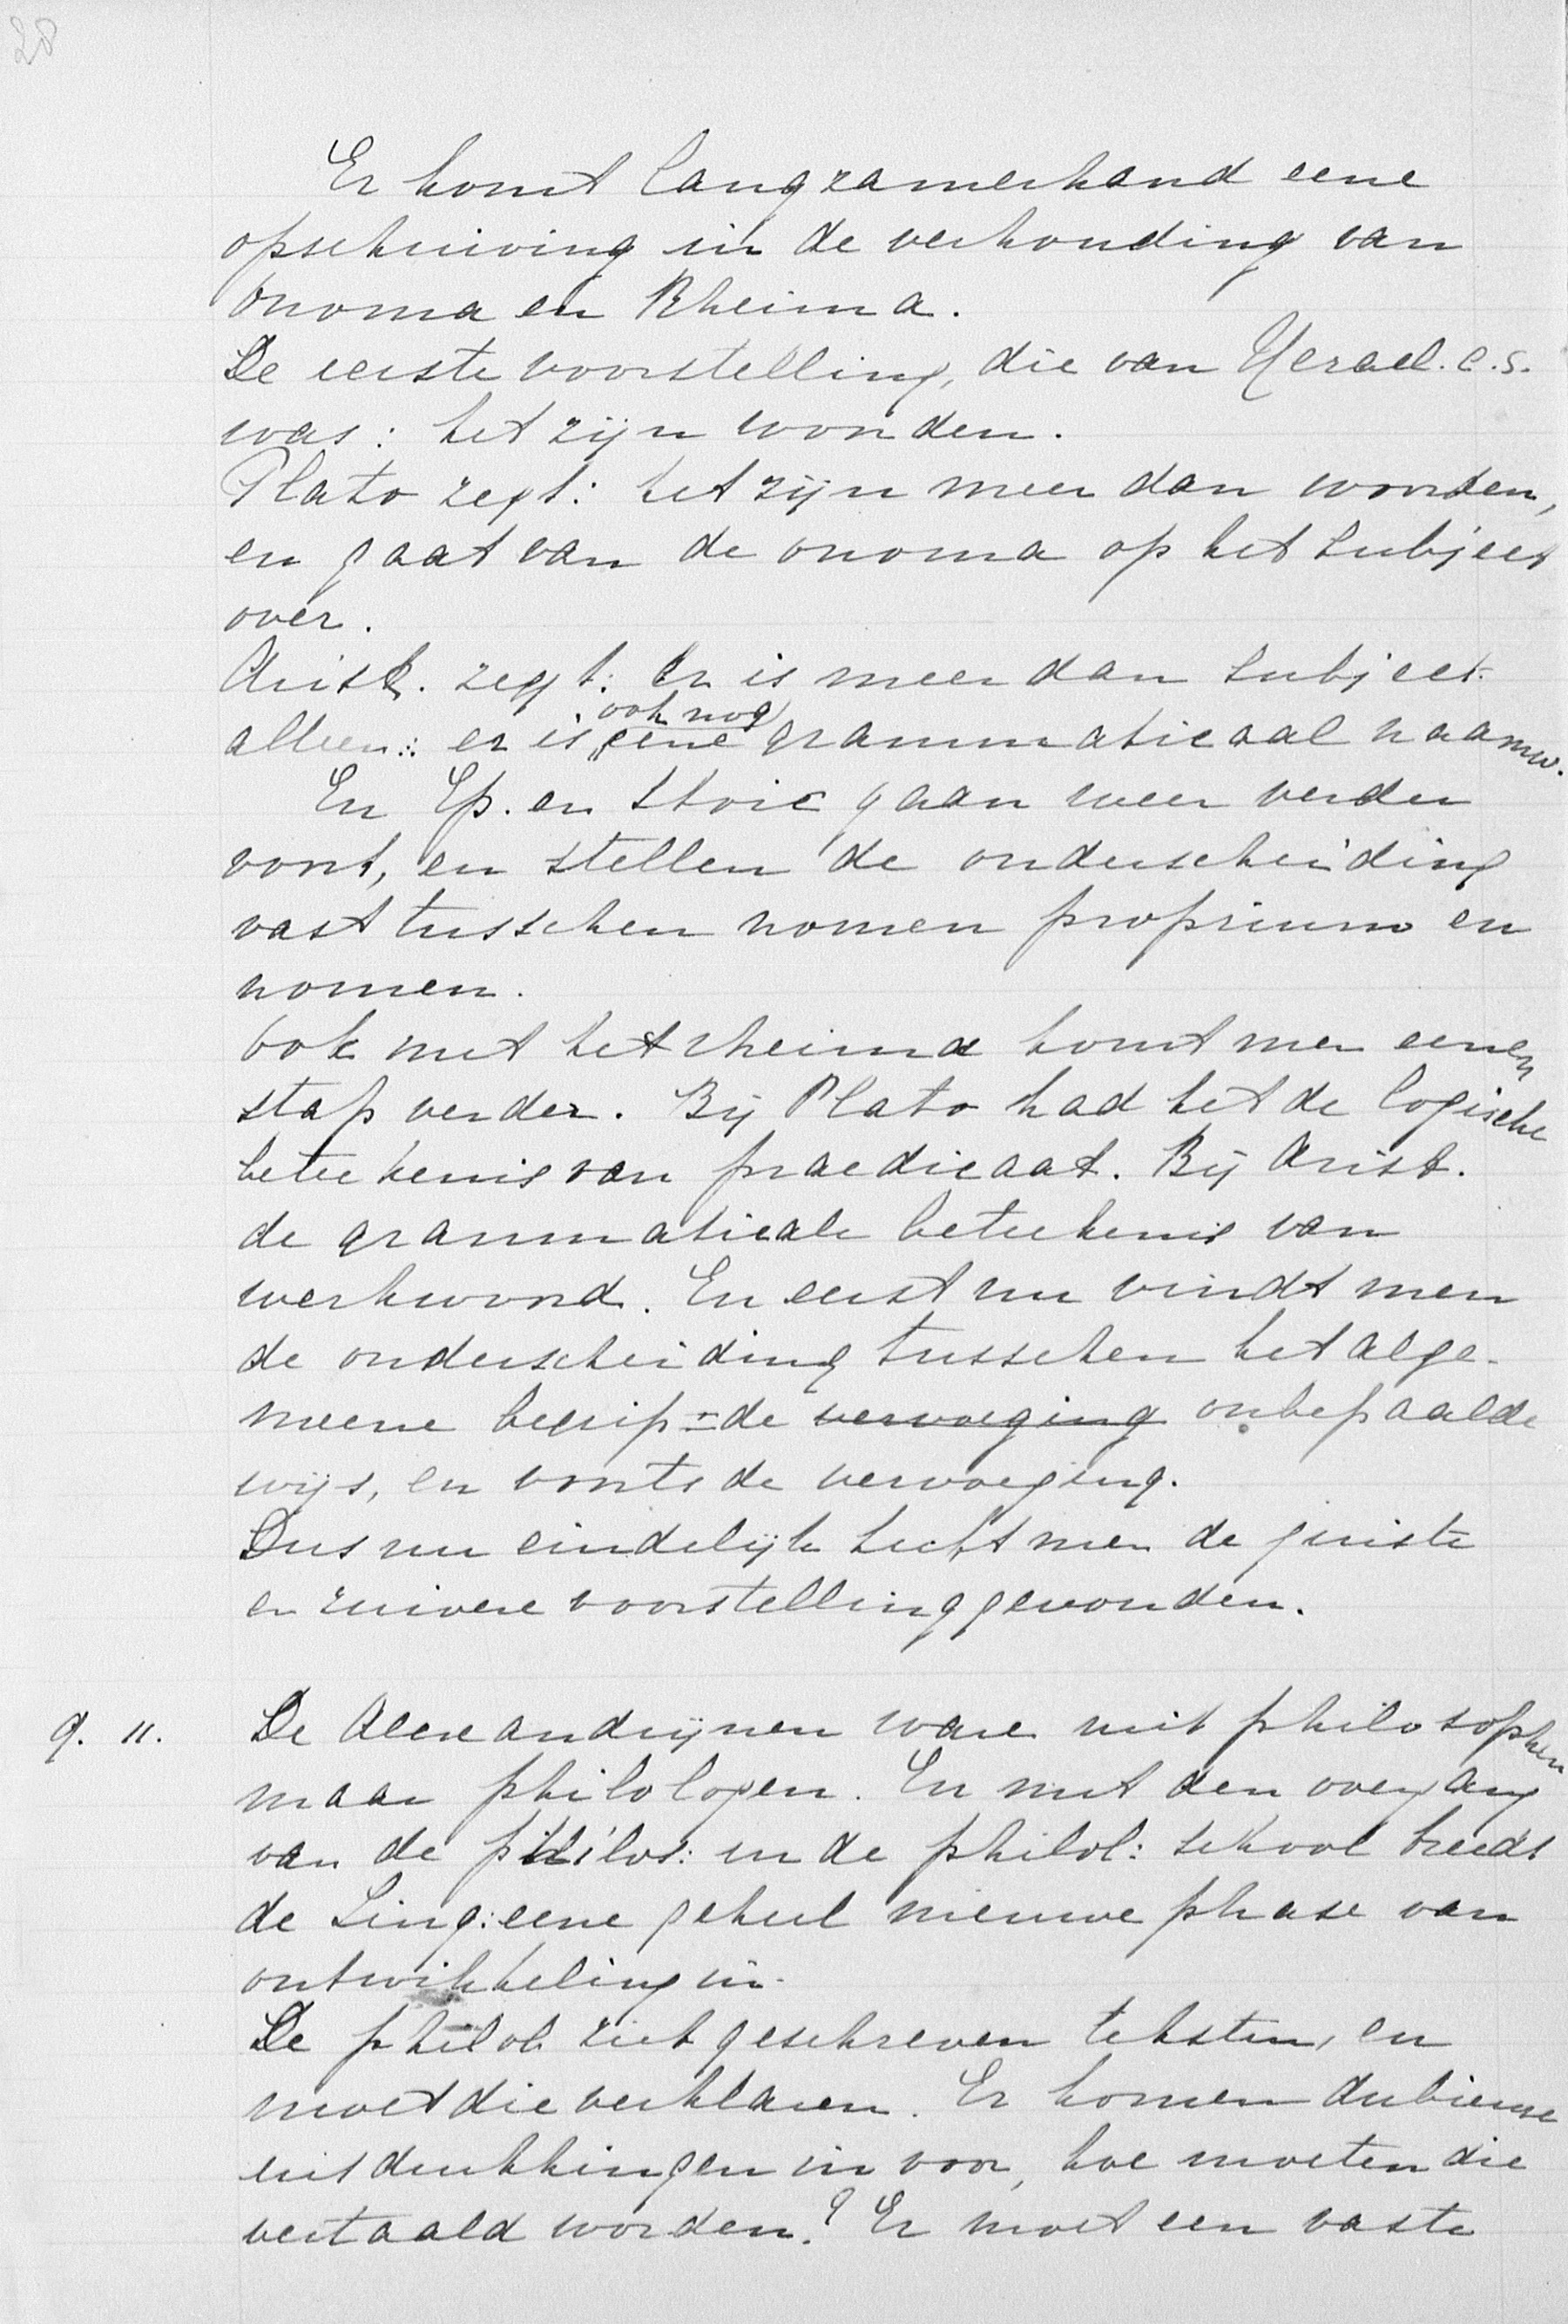 28
Er komt langzamerhand eene
opschuiving in de verhouding van
Onoma en Rheima.
De eerste voorstelling, die van Heracl. c.s.
was: het zijn woorden.
Plato zegt: het zijn meer dan woorden,
en gaat van de onoma op het Subject
over.
Arist. zegt: er is meer dan Subject
alleen: er is ook nog eene grammaticaal naamw.
En Ep. en Stoic gaan weer verder
voort, en stellen de onderscheiding
vast tusschen nomen proprium en
nomen.
Ook met het rheima komt men eenen
stap verder. Bij Plato had het de logische
beteekenis van praedicaat. Bij Arist.
de grammaticale beteekenis van
werkwoord. En eerst nu vindt men
de onderscheiding tusschen het alge-
meene begrip = de vervoeging onbepaalde
wijs, en voorts de vervoeging.
Dus nu eindelijk heeft men de juiste
en zuivere voorstelling gevonden.
q. 11. De Alexandrijnen ware niet philosophen
maar philologen. En met den overgang
van de philos: in de philol: school treedt
de Ling: eene geheel nieuwe phase van
ontwikkeling in.
De philol. ziet geschreven teksten, en
moet die verklaren. Er komen dubieuse
uitdrukkingen in voor, hoe moeten die
vertaald worden? Er moet een vaste